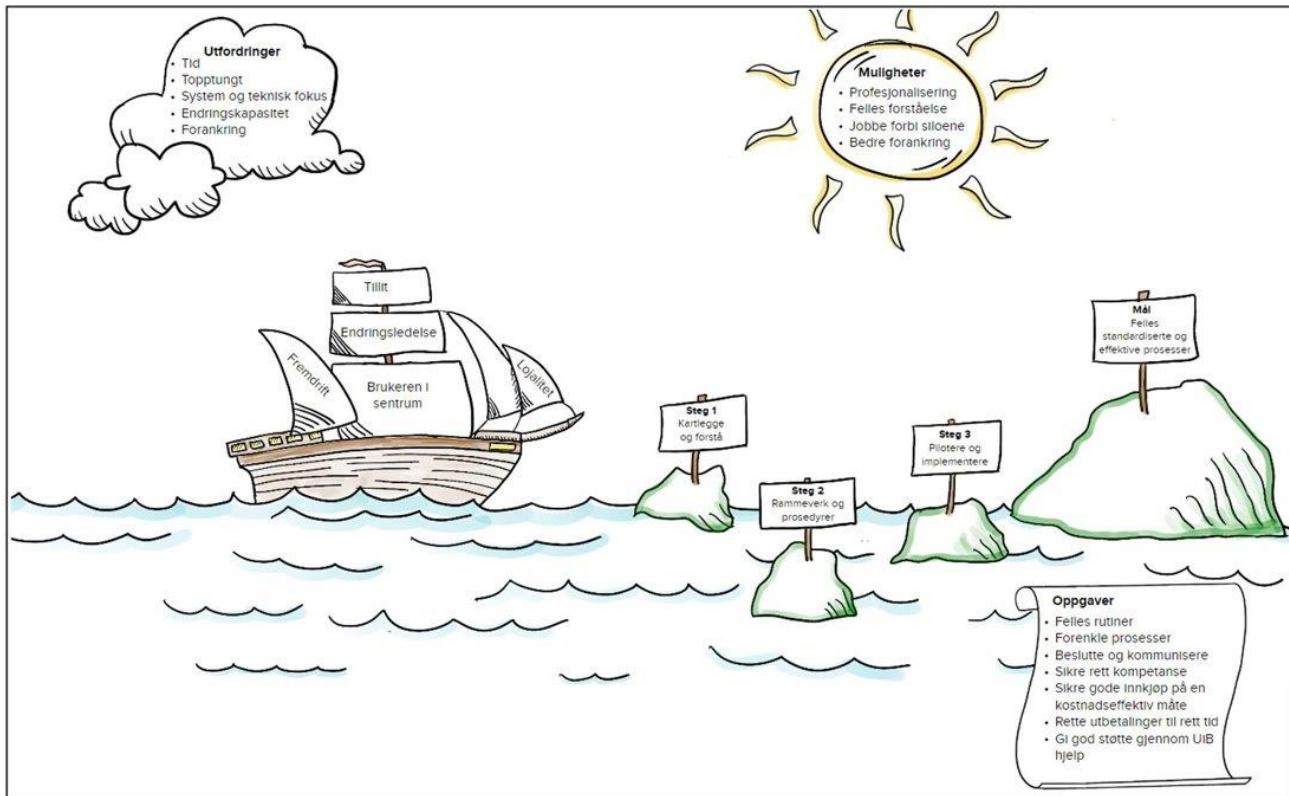 Utfordringer
• Tid
• Topptungt
• System og teknisk fokus
• Endringskapasitet
• Forankring
Muligheter
• Profesjonalisering
• Felles forståelse
• Jobbe forbi siloene
• Bedre forankring
Tillit
Endringsledelse
Fremdrift
Brukeren i
sentrum
Lojalitet
Steg 1
Kartlegge
og forstå
Steg 2
Rammeverk og
prosedyrer
Steg 3
Pilotere og
implementere
Mål
Felles
standardiserte og
effektive prosesser
Oppgaver
• Felles rutiner
• Forenkle prosesser
• Beslutte og kommunisere
• Sikre rett kompetanse
• Sikre gode innkjøp på en
kostnadseffektiv måte
• Rette utbetalinger til rett tid
• Gi god støtte gjennom UiB
hjelp